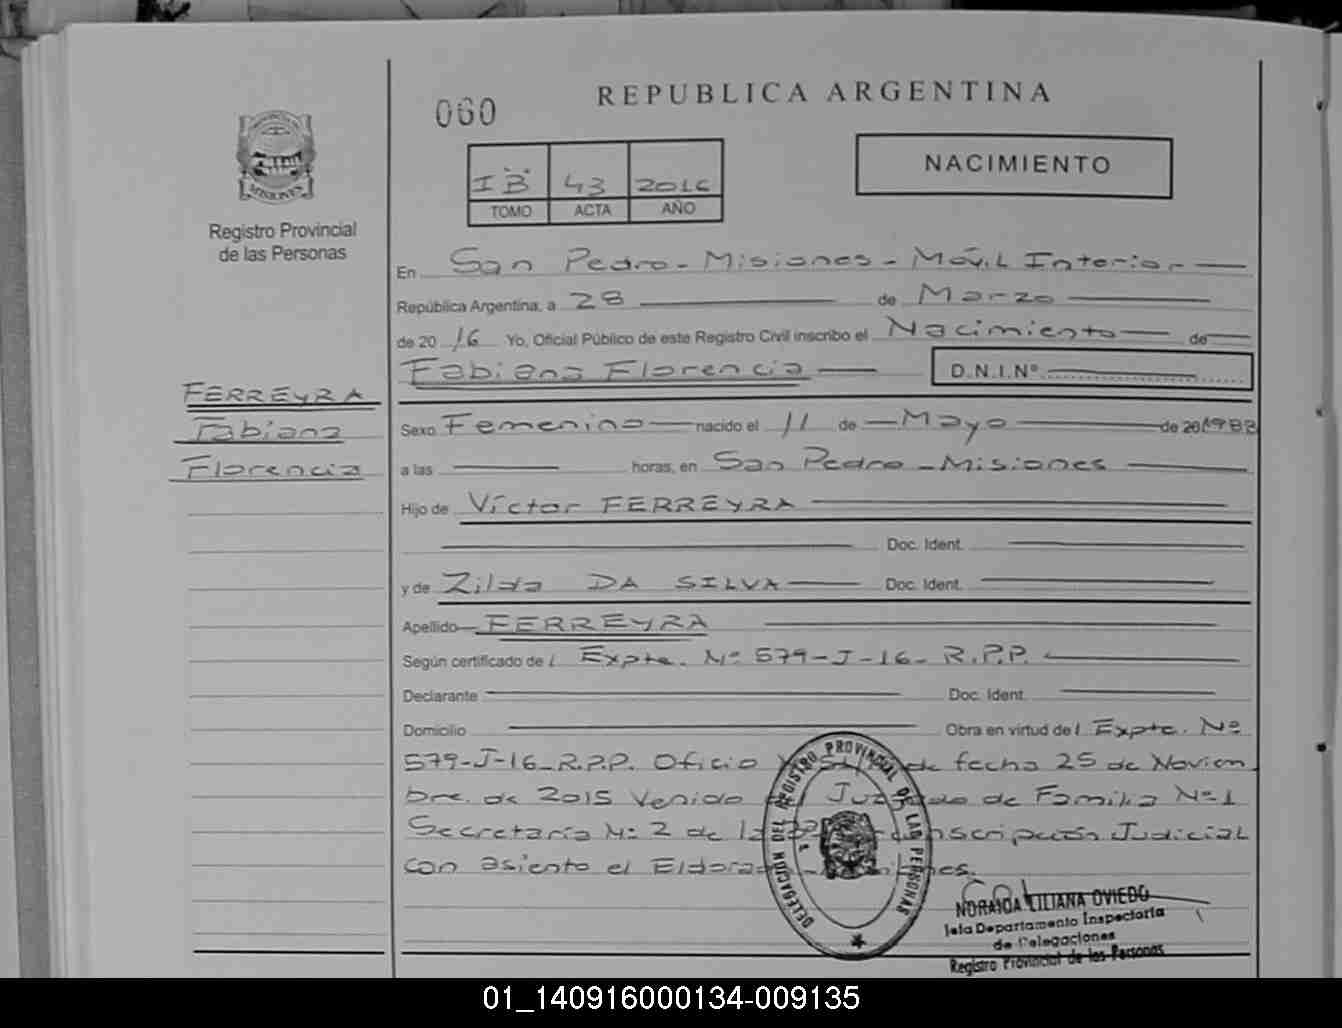 060
REPUBLICA ARGENTINA
NACIMIENTO
I "B" 43 2016
TOMO ACTA AÑO
PROVINCIA DE MISIONES
Registro Provincial
de las Personas
En San Pedro - Misiones - Móvil Interior
República Argentina, a 28 de Marzo
de 20 16 Yo, Oficial Público de este Registro Civil inscribo el Nacimiento de
Fabiana Florencia D.N.I.Nº
FERREYRA
Fabiana
Florencia
Sexo Femenino nacido el 11 de Mayo de 20
a las horas, en San Pedro - Misiones
Hijo de Víctor FERREYRA
Doc. Ident.
y de Zilda DA SILVA Doc. Ident.
Apellido FERREYRA
Según certificado de Expte. Nº 579-J-16- R.P.P.
Declarante Doc. Ident.
Domicilio Obra en virtud de Expte. Nº
579-J-16-R.P.P. Oficio de fecha 25 de Noviem
bre. de 2015 Venido Juzgado de Familia Nº1
Secretaría Nº 2 de la Circunscripción Judicial
con asiento el Eldorado - Misiones.
DELEGACION DEL REGISTRO PROVINCIAL DE LAS PERSONAS
NORAIDA LILIANA OVIEDO
Jefa Departamento Inspectoría
de Delegaciones
Registro Provincial de las Personas
01_140916000134-009135